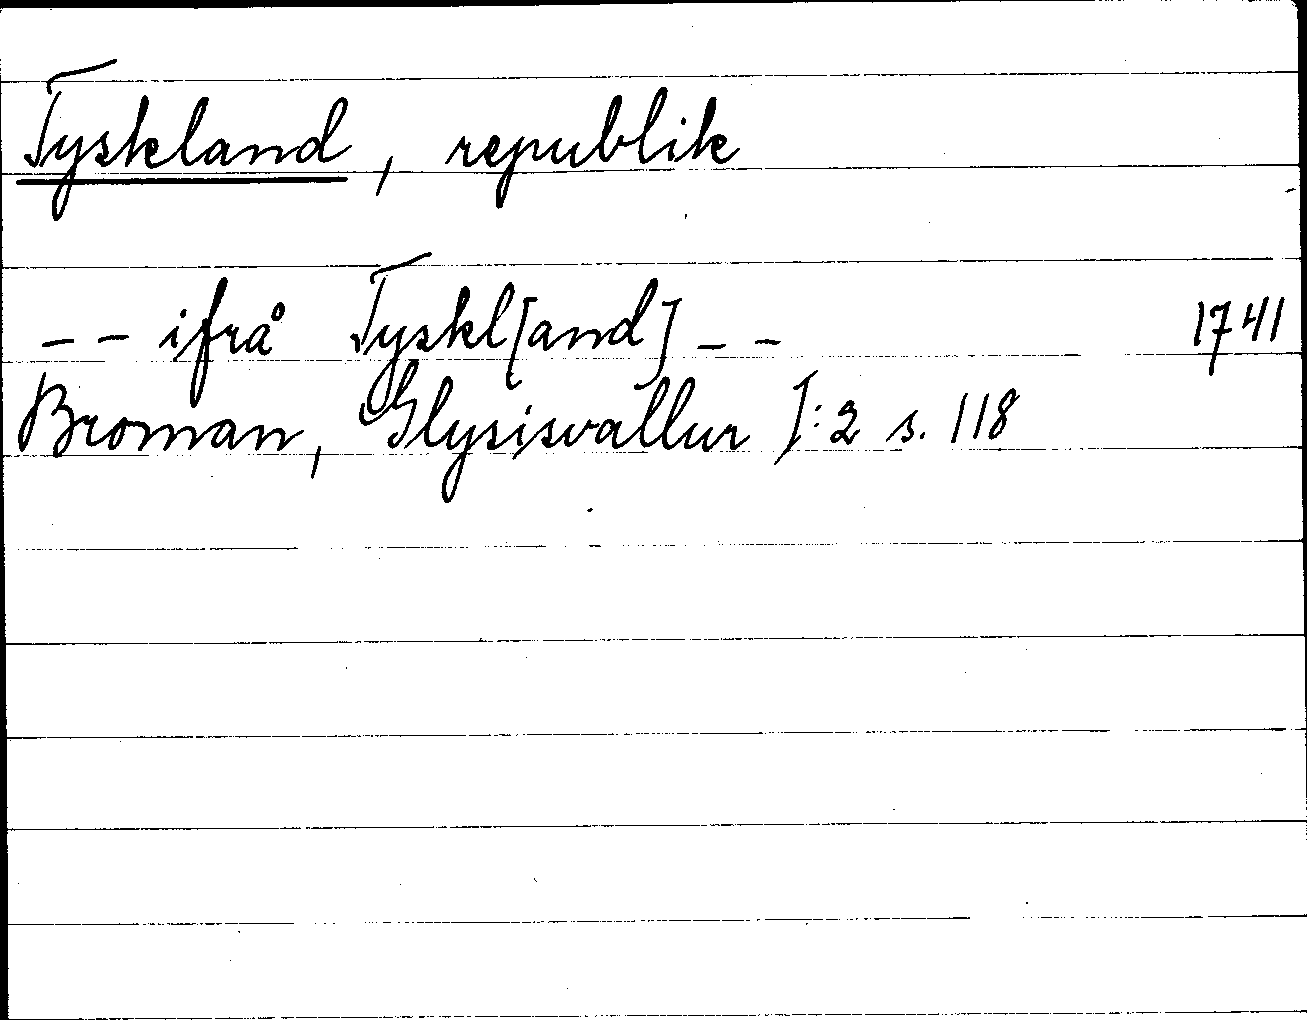 Tyskland, republik
-- ifrå Tyskl[and] -- 1741
Broman, Glysisvallur I:2 s. 118